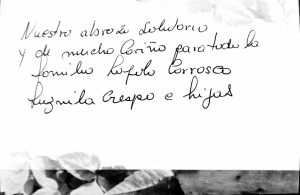 Nuestro abrazo solidario
y de mucho cariño para toda la
familia Carrasco
Luzmila Crespo e hijas